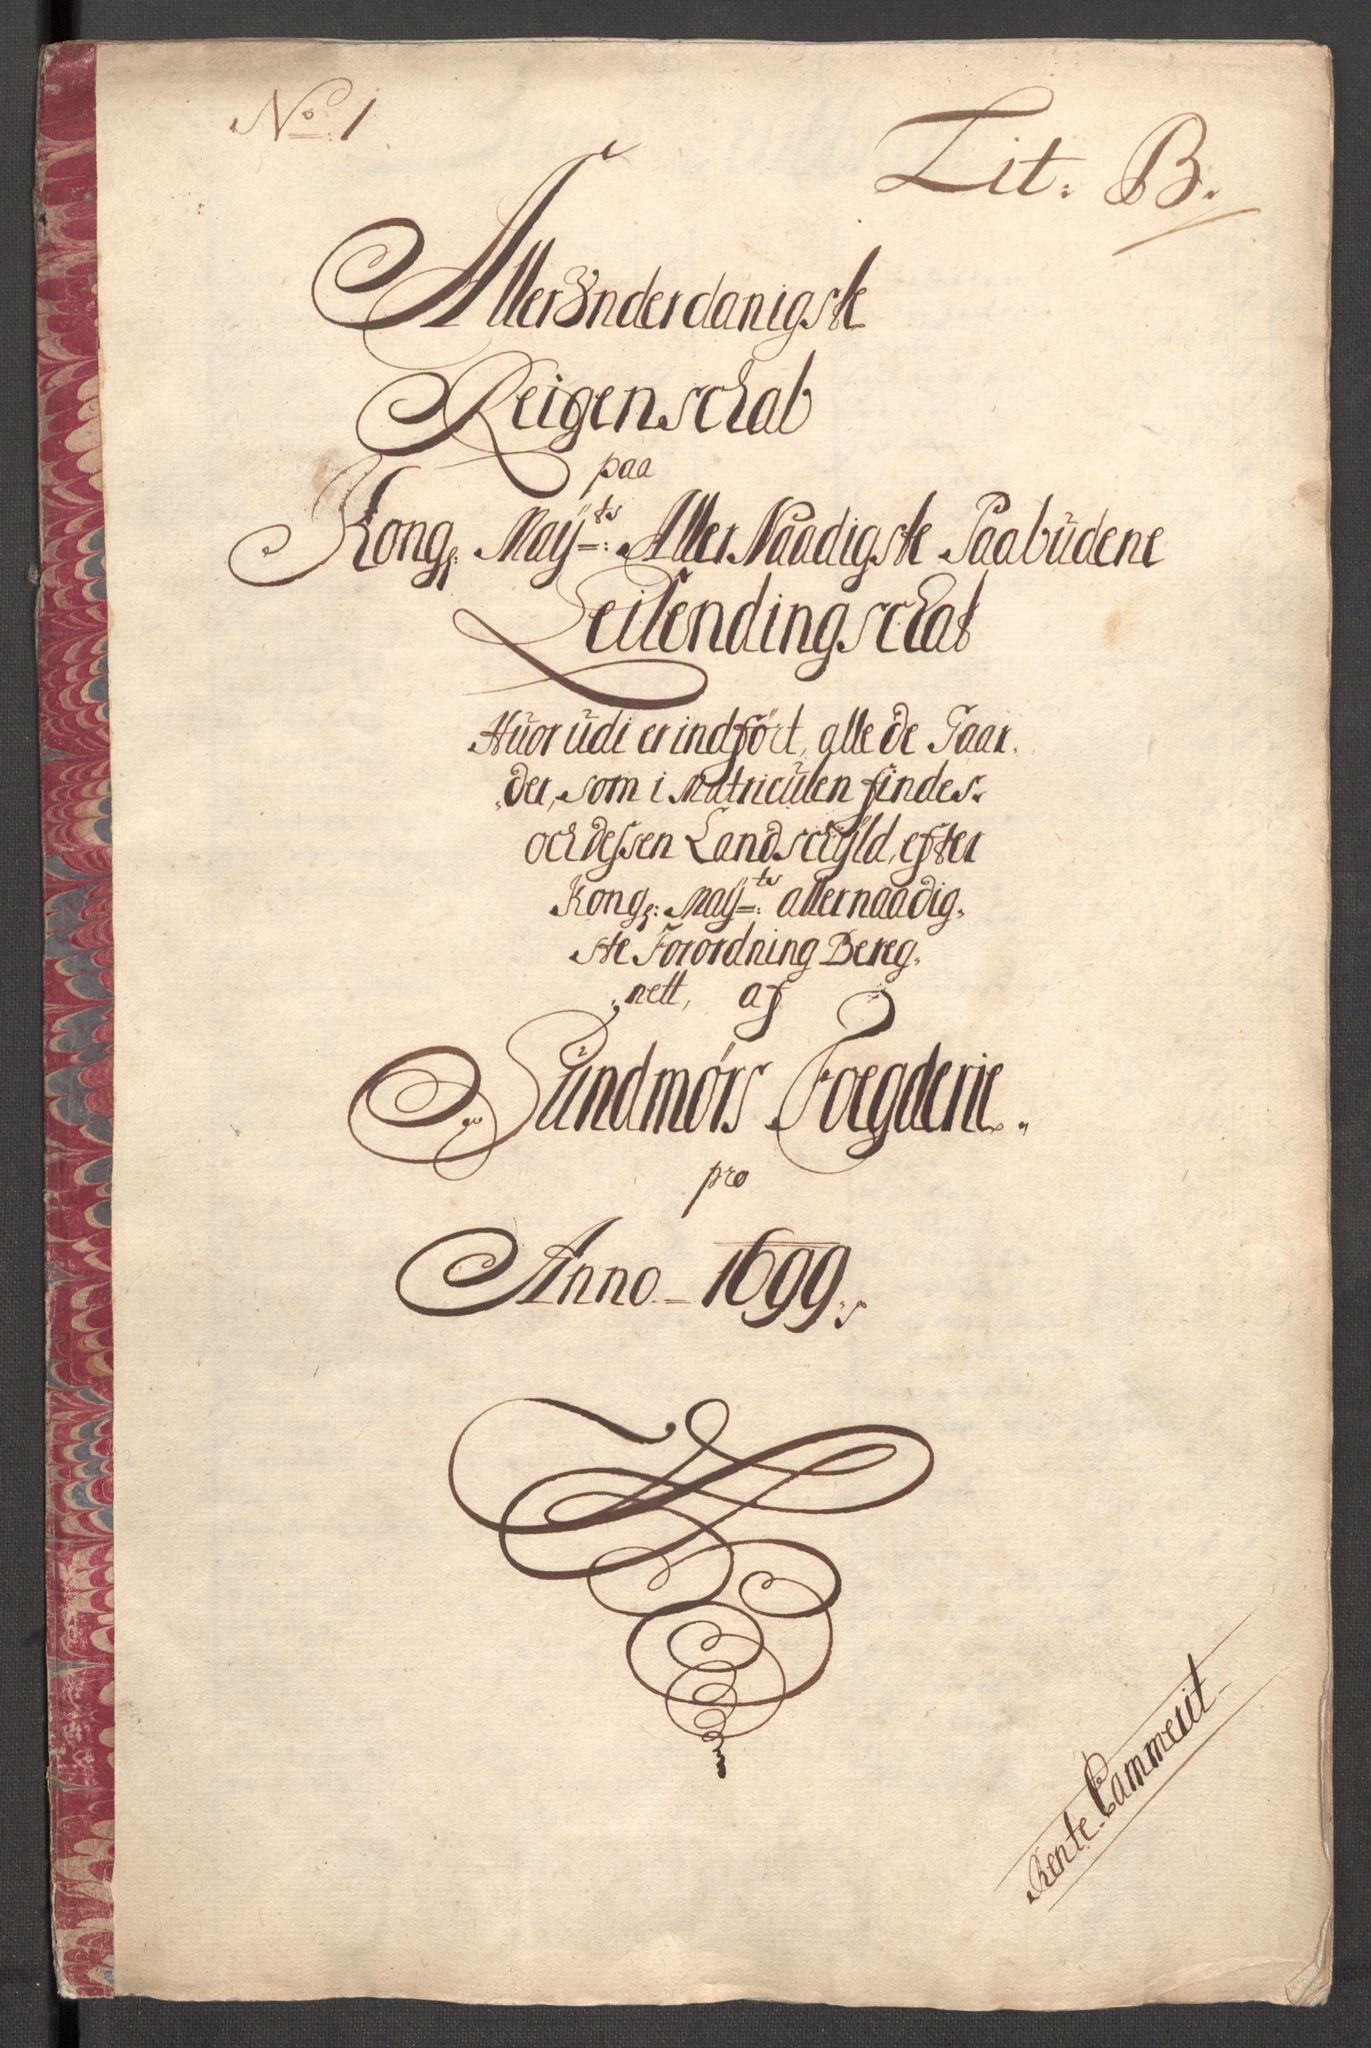 No. 1
Lit: B.
AllerUnderdanigste
Reigenschab
paa
Kong: Maÿts: AllerNaadigste Paabüdene
Leilendingschat
Huorüdi er indført, alle de Gaar,
der, som i Matriculen findes
och dessen Landschÿld, efter
Kong: Maÿts: allernaadig,
ste Forordning Bereg,
nett, af
Sündmørs Foegderie.
pro
Anno - 1699,
Rente Cammerit